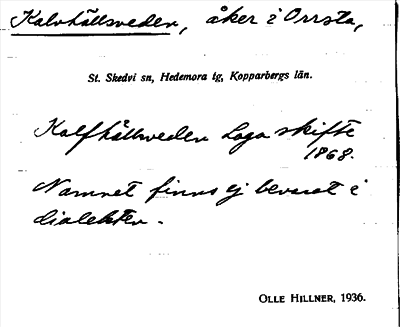 Kalvhållsveden, åker i Orrsta,
St. Skedvi sn, Hedemora tg, Kopparbergs län.
Kalfhållsveden Laga skifte
1868.
Namnet finns ej bevarat i
dialekten.
OLLE HILLNER, 1936.